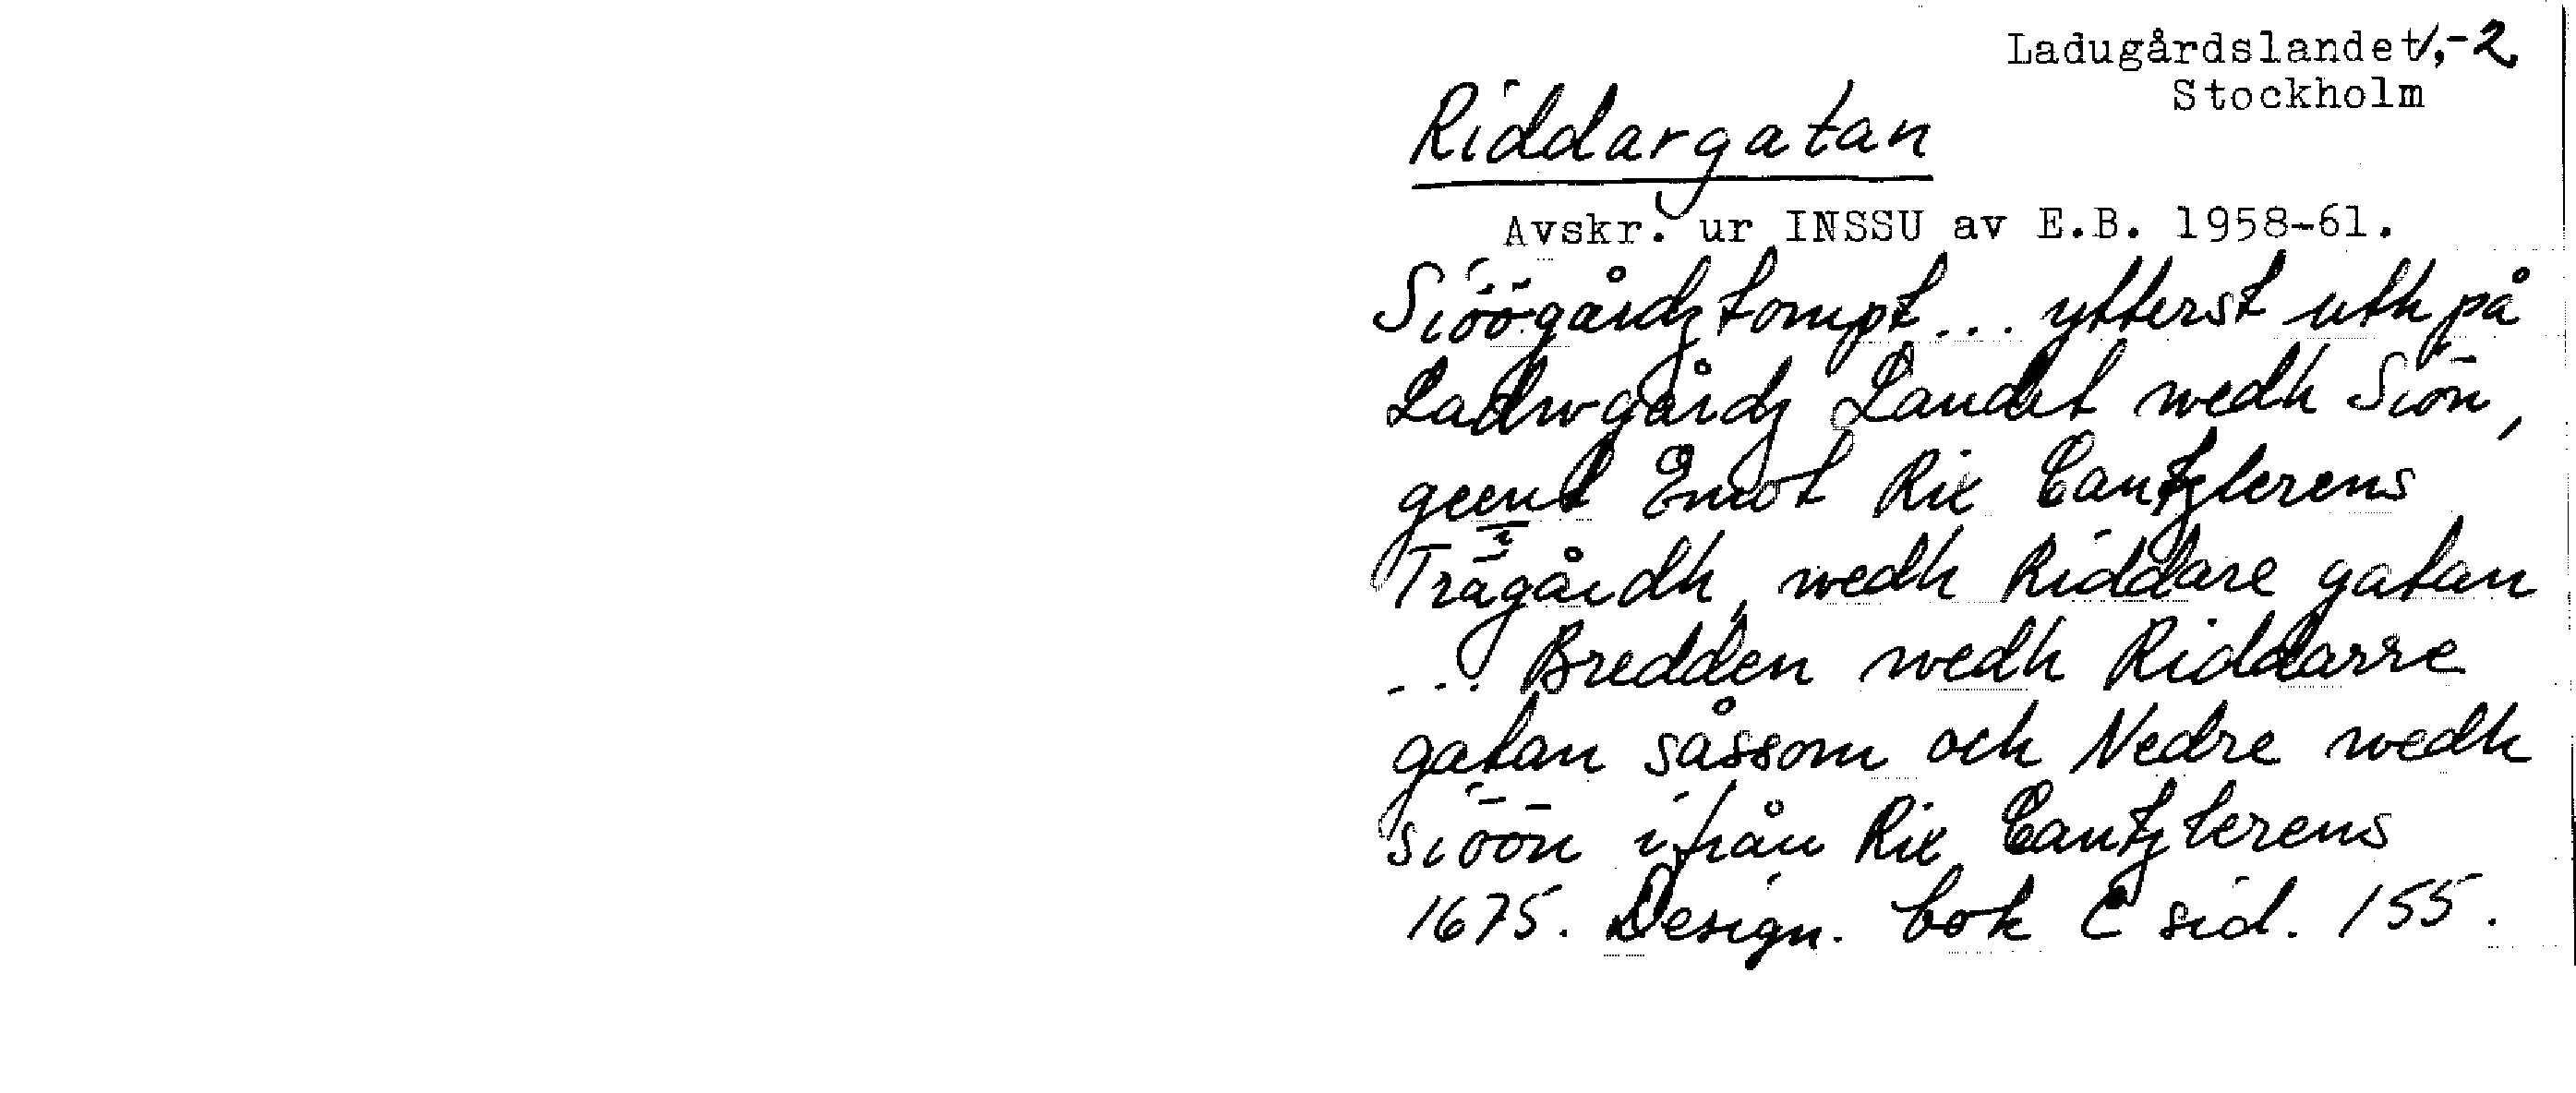 Ladugårdslandet 1,-2
Stockholm
Riddargatan
Avskr. ur INSSU av E.B. 1958-61.
Siöögårdz tompt ... ytterst uth på
Ladwgårdz Landet wedh Siön,
geent Emot Rix Cantzlerens
Trägårdh, wedh Riddare gatan
... Bredden wedh Riddarre
gatan såssom och Nedre wedh
siöön ifrån Rix Cantzlerens
1675. Design. bok C sid. 155.